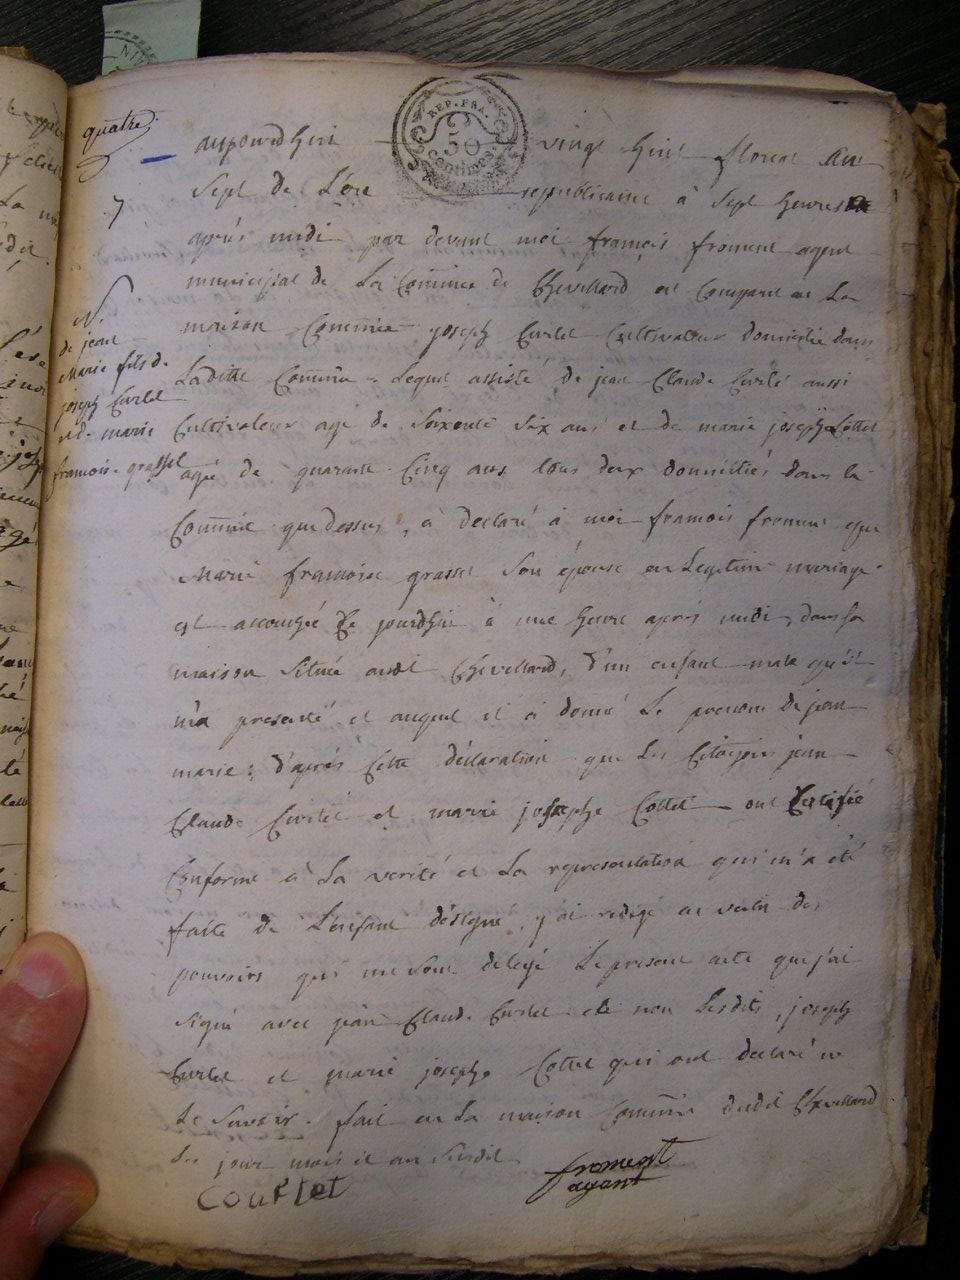 quatre
7
N.
de jean
Marie fils de
joseph Curlet
et de marie
francoise grasset
REP. FRA.
50
Centimes
aujourdhui vingt huit floreal an
Sept de L'ere republicaine à Sept heures
après midi par devant moi françois froment agent
municipal de La Commune de Chevillard est Comparu en La
maison Commune joseph Curlet Cultivateur domicilié dans
Laditte Commune Lequel assisté de jean Claude Curlet aussi
Cultivateur agé de Soixante Six ans et de marie josephe Cottet
agée de quarante Cinq ans tous deux domiciliés dans la
Commune que dessus, à declaré à moi francois froment que
Marie francoise grasset Son épouse en Legitime mariage
est accouchée Ce jourdhui à une heure après midi, dans sa
maison Située audit Chevillard, d'un enfant male qu'il
m'a presenté et auquel il à donné Le prenom de jean
marie; d'après Cette déclaration que Les Citoyens jean
Claude Curlet et marie josephe Cottet ont Certifié
Conforme à La verité et La representation qui m'a été
faite de L'enfant désigné, j'ai redigé en vertu des
pouvoirs qui me Sont delegé Le present acte que j'ai
Signé avec jean Claude Curlet et non Lesdits, joseph
Curlet et marie josephe Cottet qui ont declaré ne
Le Savoir. fait en La maison Commune dudit Chevillard
Les jour mois et an Susdit
Courlet froment
agant